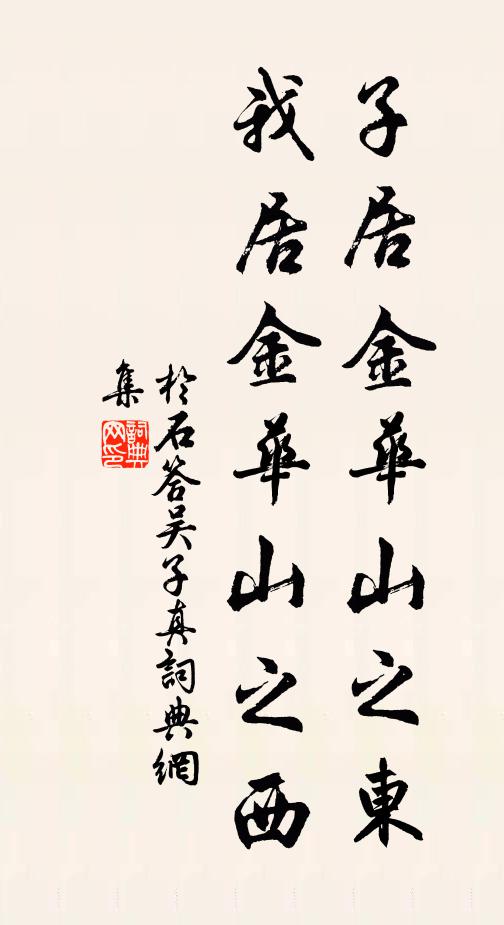 子居金華山之東
我居金華山之西
於石答吴子真詞典網
集
詞典网印